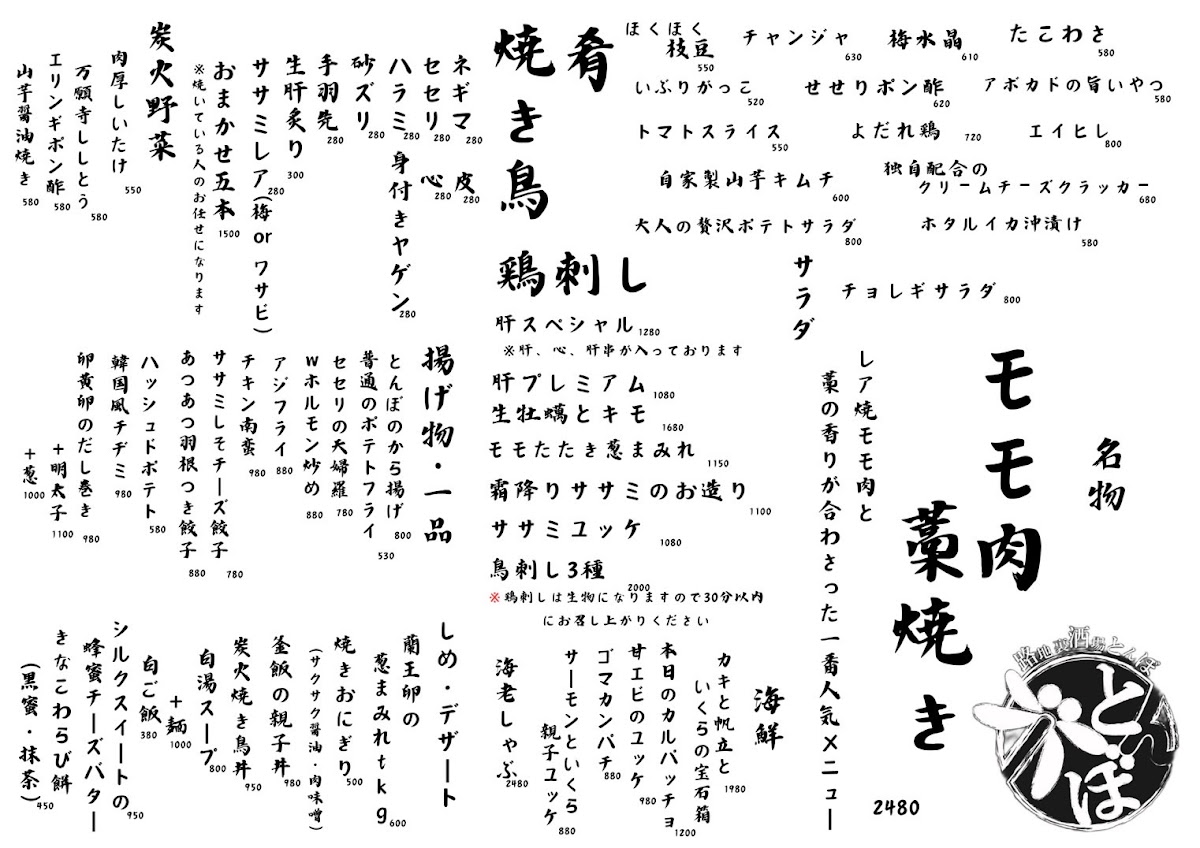 肴
ほくほく
枝豆
550
チャンジャ
630
梅水晶
610
たこわさ
580
いぶりがっこ
520
せせりポン酢
620
アボカドの旨いやつ
580
トマトスライス
550
よだれ鶏
720
エイヒレ
800
自家製山芋キムチ
600
独自配合の
クリームチーズクラッカー
680
大人の贅沢ポテトサラダ
800
ホタルイカ沖漬け
580
サラダ
チョレギサラダ
800
名物
モモ肉
藁焼き
レア焼モモ肉と
藁の香りが合わさった一番人気メニュー
2480
路地裏酒場とんぼ
とんぼ
焼き鳥
ネギマ
280
皮
280
セセリ
280
心
280
ハラミ
280
身付きヤゲン
280
砂ズリ
280
手羽先
280
生肝炙り
300
ササミレア(梅 or ワサビ)
280
おまかせ五本
1500
※焼いている人のお任せになります
炭火野菜
肉厚しいたけ
550
万願寺ししとう
580
エリンギポン酢
580
山芋醤油焼き
580
鶏刺し
肝スペシャル
1280
※肝、心、肝串が入っております
肝プレミアム
1080
生牡蠣とキモ
1680
モモたたき葱まみれ
1150
霜降りササミのお造り
1100
ササミユッケ
1080
鳥刺し3種
2000
※鶏刺しは生物になりますので30分以内
にお召し上がりください
揚げ物・一品
とんぼのから揚げ
800
普通のポテトフライ
530
セセリの天婦羅
780
Wホルモン炒め
880
アジフライ
880
チキン南蛮
980
ササミしそチーズ餃子
780
あつあつ羽根つき餃子
880
ハッシュドポテト
580
韓国風チヂミ
980
卵黄卵のだし巻き
980
+明太子
1100
+葱
1000
海鮮
カキと帆立と
いくらの宝石箱
1980
本日のカルパッチョ
1200
甘エビのユッケ
980
ゴマカンパチ
880
サーモンといくら
親子ユッケ
880
海老しゃぶ
2480
しめ・デザート
蘭王卵の
葱まみれtkg
600
焼きおにぎり
500
(サクサク醤油・肉味噌)
釜飯の親子丼
980
炭火焼き鳥丼
950
白湯スープ
800
+麺
1000
白ご飯
380
シルクスイートの
蜂蜜チーズバター
950
きなこわらび餅
(黒蜜・抹茶)
450